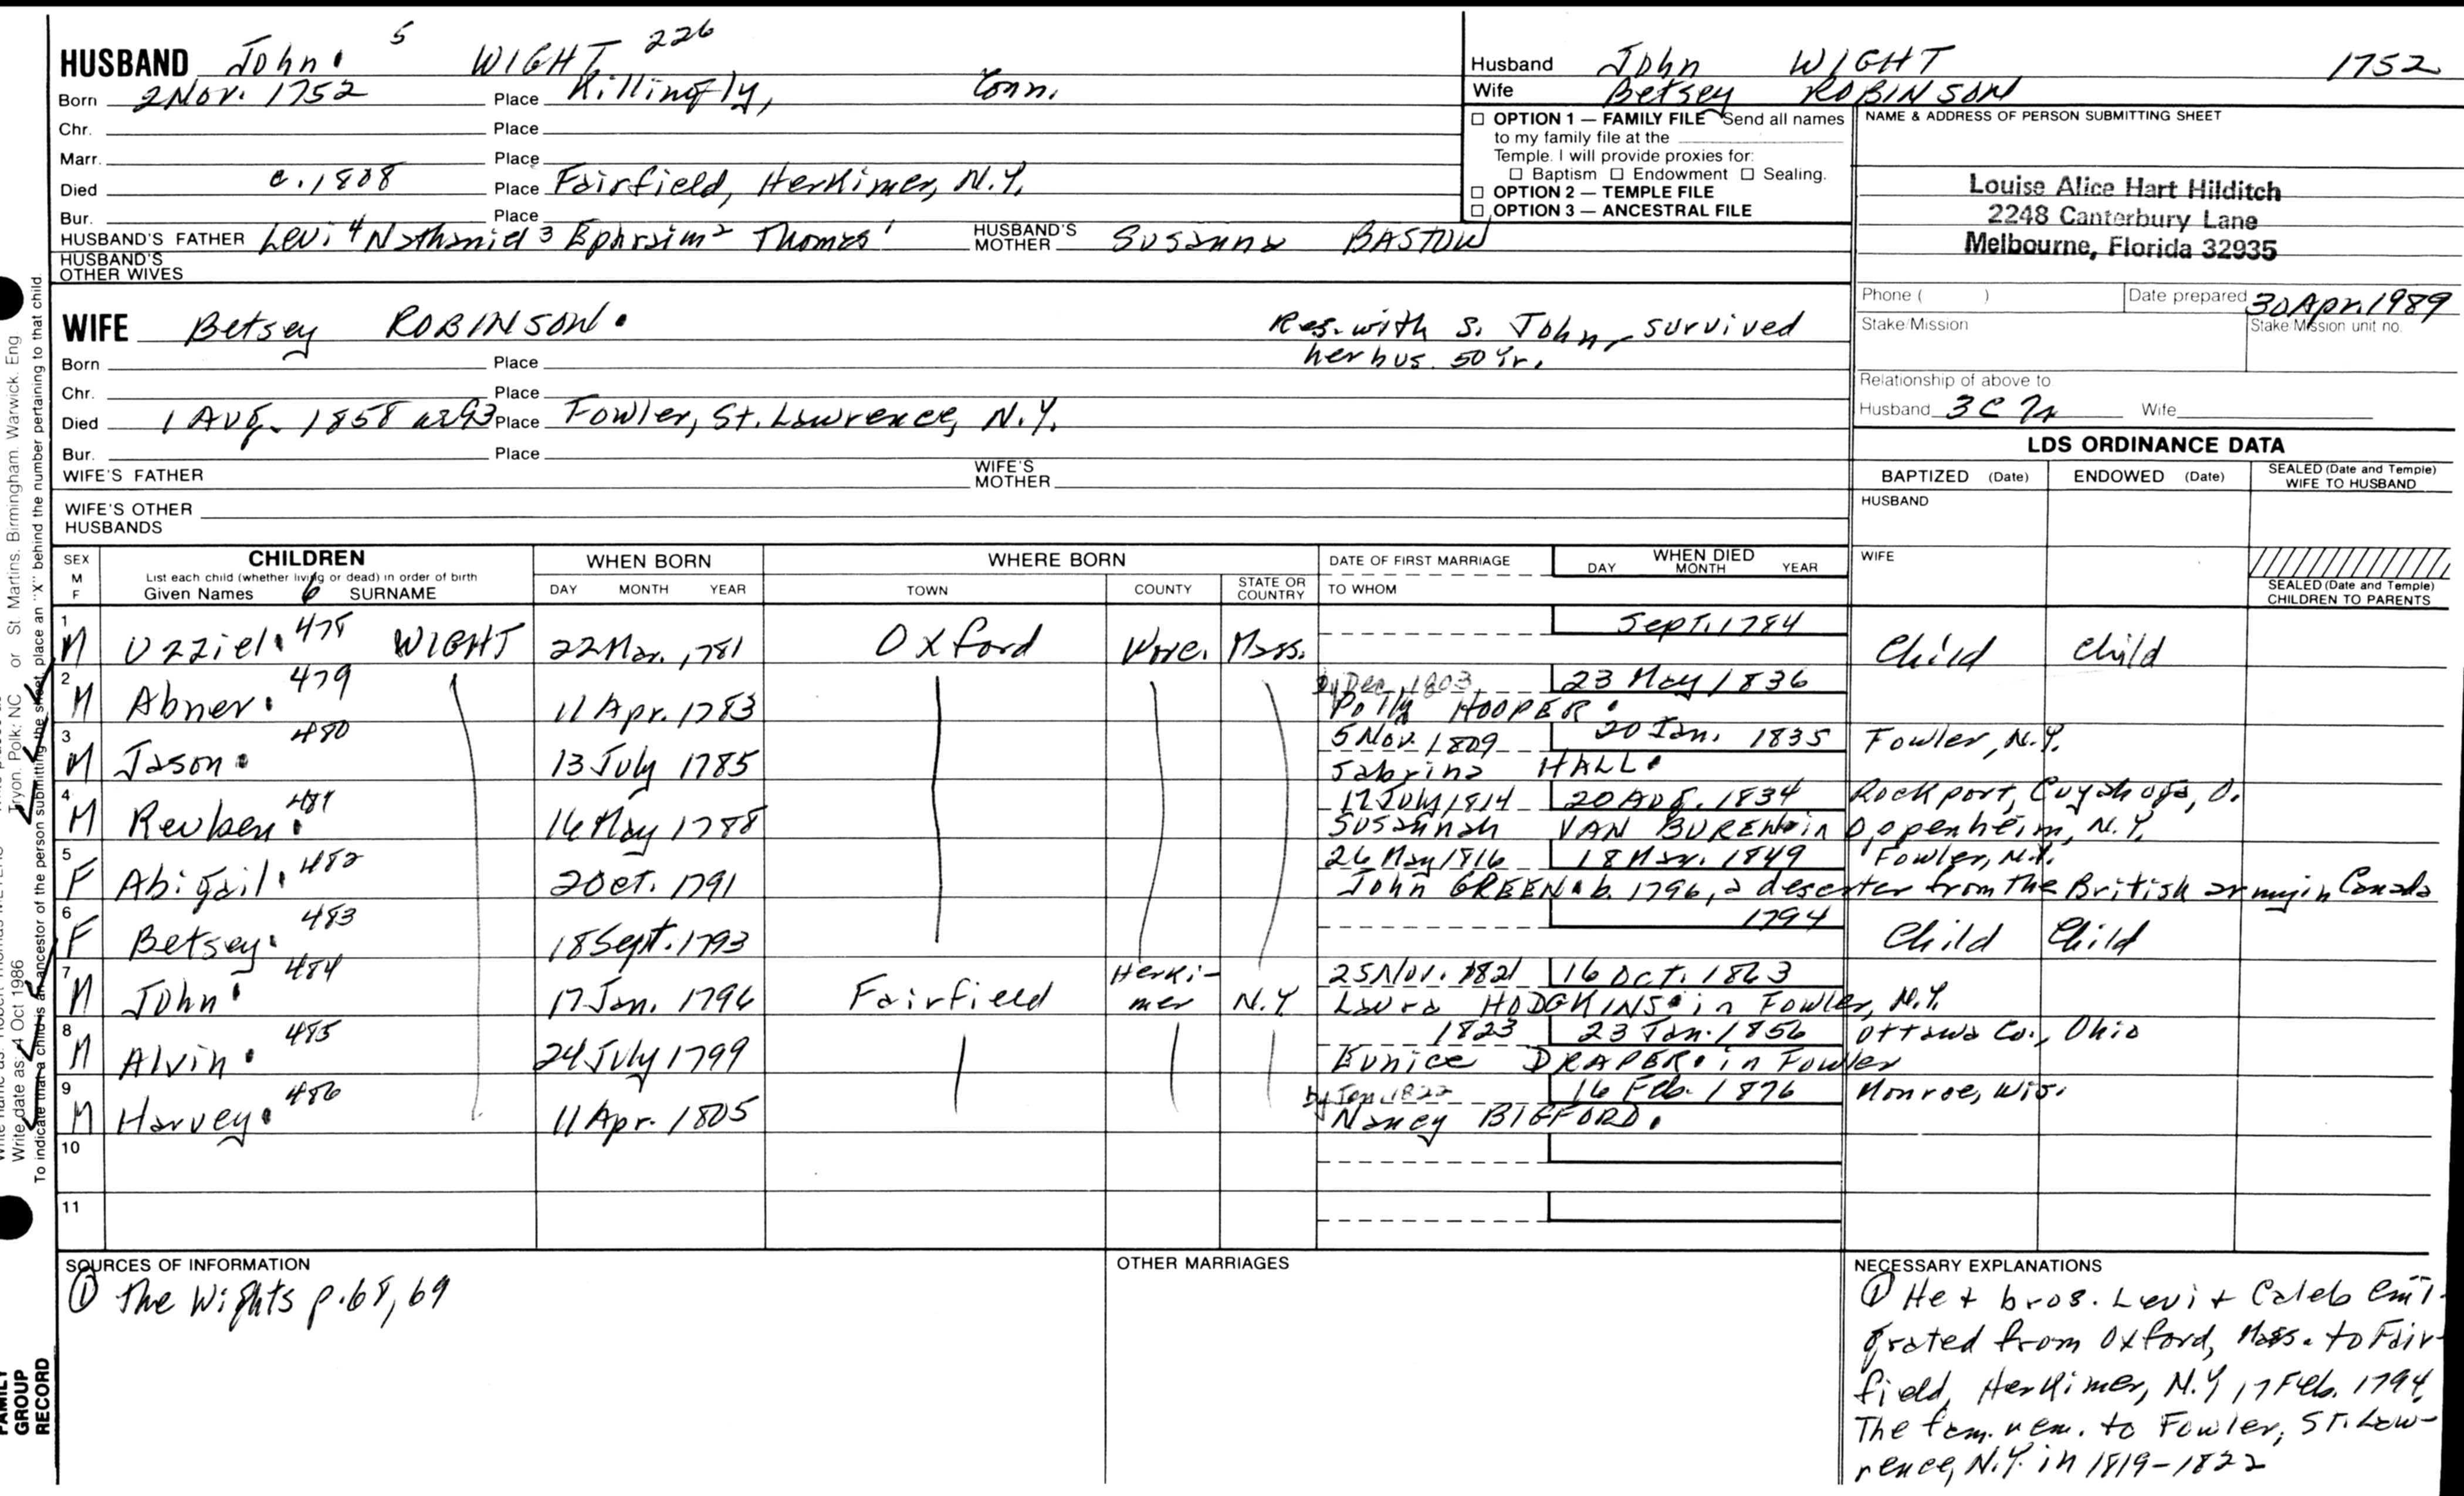 HUSBAND John. 5 WIGHT 226
Born 2 Nov. 1752 Place Killingly, Conn.
Chr. Place
Marr. Place
Died c. 1808 Place Fairfield, Herkimer, N.Y.
Bur. Place
HUSBAND'S FATHER Levi 4 Nathaniel 3 Ephraim 2 Thomas 1 HUSBAND'S MOTHER Susanna BASTOW
HUSBAND'S OTHER WIVES
WIFE Betsey ROBINSON. Res. with s. John, survived
her hus. 50 Yr.
Born Place
Chr. Place
Died 1 Aug. 1858 ae 93 Place Fowler, St. Lawrence, N.Y.
Bur. Place
WIFE'S FATHER WIFE'S MOTHER
WIFE'S OTHER HUSBANDS
Husband John WIGHT 1752
Wife Betsey ROBINSON
☐ OPTION 1 — FAMILY FILE Send all names
to my family file at the
Temple. I will provide proxies for:
☐ Baptism ☐ Endowment ☐ Sealing.
☐ OPTION 2 — TEMPLE FILE
☐ OPTION 3 — ANCESTRAL FILE
NAME & ADDRESS OF PERSON SUBMITTING SHEET
Louise Alice Hart Hilditch
2248 Canterbury Lane
Melbourne, Florida 32935
Phone ( ) Date prepared 30 Apr. 1989
Stake/Mission Stake/Mission unit no.
Relationship of above to
Husband 3C 7r Wife
LDS ORDINANCE DATA
BAPTIZED (Date) ENDOWED (Date) SEALED (Date and Temple) WIFE TO HUSBAND
HUSBAND
WIFE
SEALED (Date and Temple) CHILDREN TO PARENTS
SEX M F CHILDREN WHEN BORN WHERE BORN DATE OF FIRST MARRIAGE WHEN DIED
List each child (whether living or dead) in order of birth DAY MONTH YEAR
Given Names 6 SURNAME DAY MONTH YEAR TOWN COUNTY STATE OR COUNTRY TO WHOM
1 M Uzziel. 478 WIGHT 22 Mar. 1781 Oxford Worc. Mass. Sept. 1784 Child Child
2 M Abner. 479 11 Apr. 1783 by Dec. 1803 23 May 1836
Polly HOOPER.
3 M Jason. 480 13 July 1785 5 Nov. 1809 20 Jan. 1835 Fowler, N.Y.
Sabrina HALL.
4 M Reuben. 481 16 May 1788 17 July 1814 20 Aug. 1834 Rockport, Cuyahoga, O.
Susannah VAN BUREN. in Oppenheim, N.Y.
5 F Abigail. 482 2 Oct. 1791 26 May 1816 18 Mar. 1849 Fowler, N.Y.
John GREEN. b. 1796, a deserter from the British army in Canada
6 F Betsey. 483 18 Sept. 1793 1794 Child Child
7 M John. 484 17 Jan. 1796 Fairfield Herkimer N.Y. 25 Nov. 1821 16 Oct. 1863
Laura HODGKINS. in Fowler, N.Y.
8 M Alvin. 485 24 July 1799 1823 23 Jan. 1856 Ottawa Co., Ohio
Eunice DRAPER. in Fowler
9 M Harvey. 486 11 Apr. 1805 by Jan 1822 16 Feb. 1876 Monroe, Wis.
Nancy BIGFORD.
10
11
SOURCES OF INFORMATION
① The Wights p. 68, 69
OTHER MARRIAGES
NECESSARY EXPLANATIONS
① He + bros. Levi + Caleb emi-
grated from Oxford, Mass. to Fair-
field, Herkimer, N.Y. 17 Feb. 1794
The fam. rem. to Fowler, St. Law-
rence, N.Y. in 1819-1822
Tryon. Polk: NC or St Martins. Birmingham. Warwick. Eng
Write date as: 4 Oct 1986
To indicate that a child is an ancestor of the person submitting the sheet, place an "X" behind the number pertaining to that child.
FAMILY
GROUP
RECORD